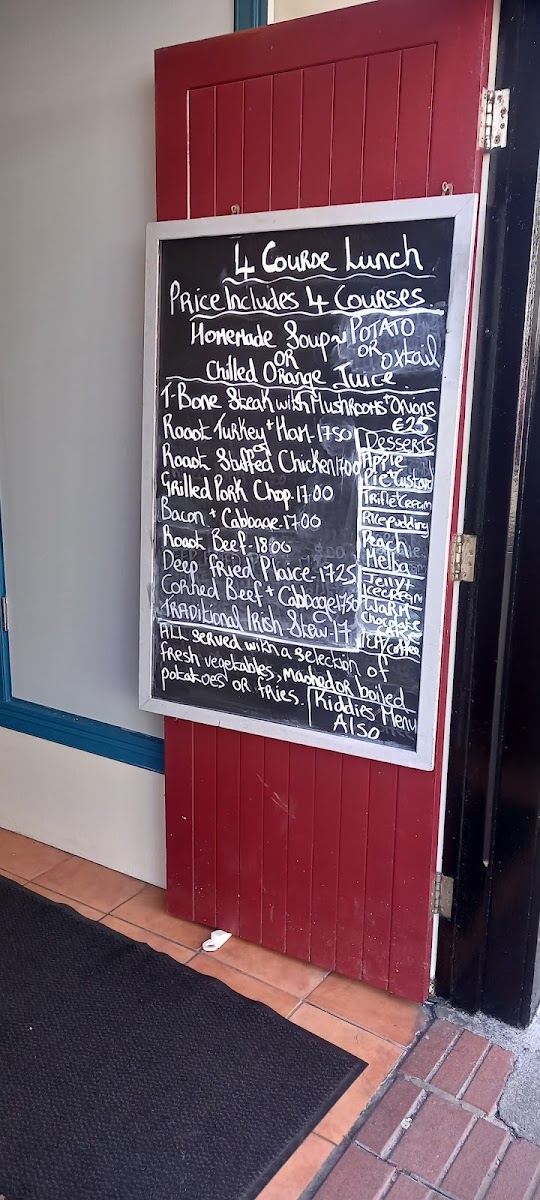 4 Course Lunch
Price Includes 4 Courses
Homemade Soup ~ Potato
OR
Oxtail
OR
Chilled Orange Juice
T-Bone Steak with Mushrooms + Onions
€25
Roast Turkey + Ham. 1750
or
Roast Stuffed Chicken 1700
Grilled Pork Chop. 1700
Bacon + Cabbage. 1700
Roast Beef. 1800
Deep Fried Plaice. 1725
Corned Beef + Cabbage 1750
Traditional Irish Stew. 17
Desserts
Apple
Pie + Custard
Trifle Cream
Rice pudding
Peach
Melba
Jelly +
Icecream
Warm
Chocolate
Cake
Tea/Coffee
All served with a selection of
fresh vegetables, mashed or boiled
potatoes or fries.
Kiddies Menu
Also